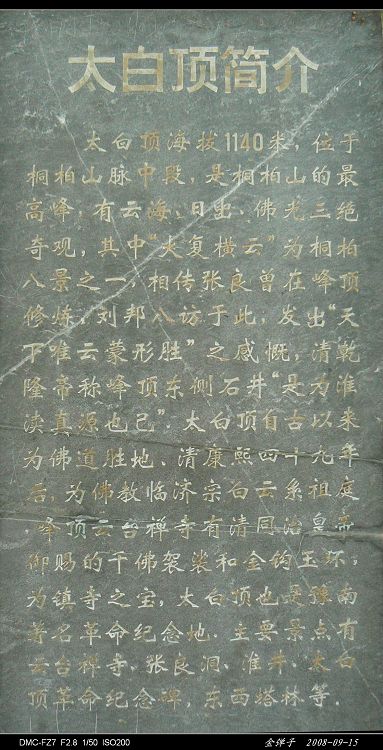 太白顶简介
太白顶海拔1140米，位于
桐柏山脉中段，是桐柏山的最
高峰，有云海、日出、佛光三绝
奇观，其中“大复横云”为桐柏
八景之一，相传张良曾在峰顶
修炼，刘邦八访于此，发出“天
下唯云蒙形胜”之感慨，清乾
隆帝称峰顶东侧石井“是为淮
渎真源也已”．太白顶自古以来
为佛道胜地．清康熙四十九年
后，为佛教临济宗白云系祖庭
，峰顶云台禅寺有清同治皇帝
御赐的千佛袈裟和金钩玉环，
为镇寺之宝，太白顶也是豫南
著名革命纪念地．主要景点有
云台禅寺、张良洞、淮井、太白
顶革命纪念碑，东西塔林等．
DMC-FZ7 F2.8 1/50 ISO200
金弹子 2008-09-15